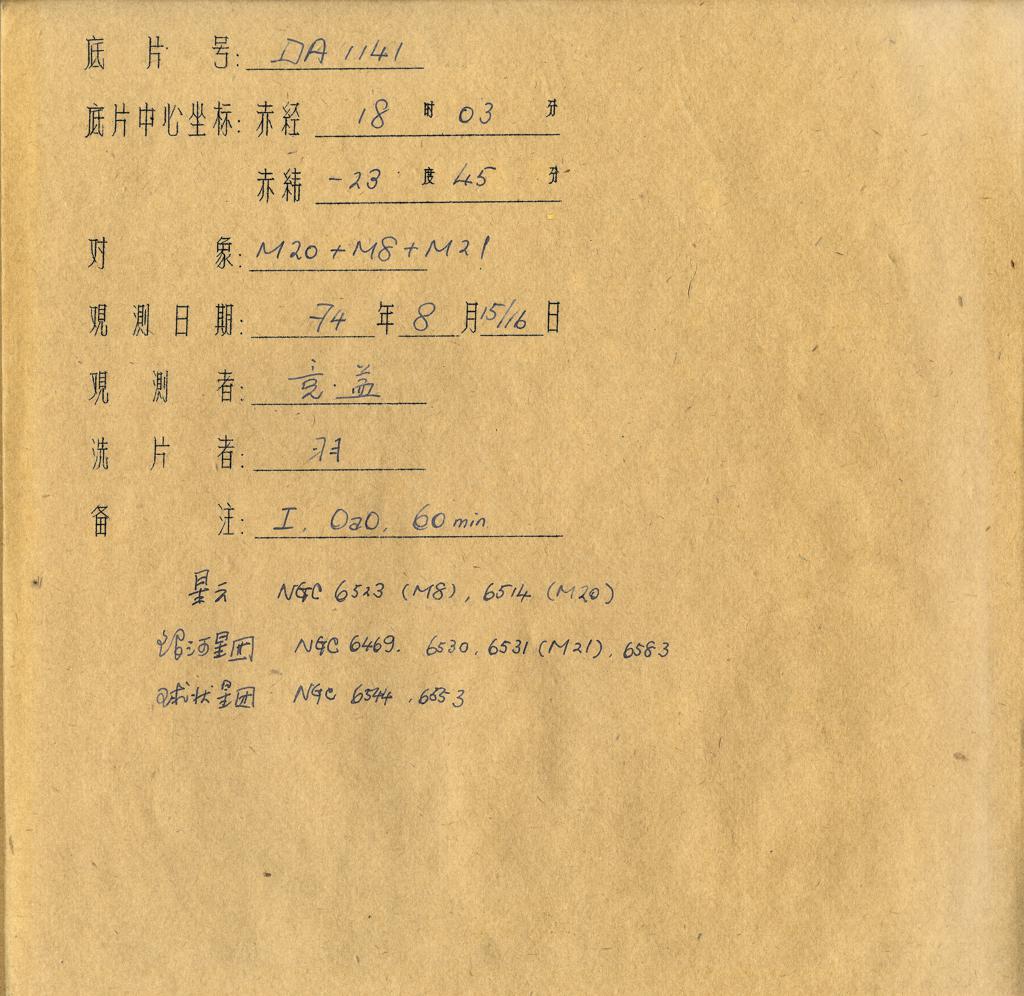 底片号: DA 1141
底片中心坐标: 赤经 18 时 03 分
赤纬 -23 度 45 分
对象: M20+M8+M21
观测日期: 74 年 8 月 15/16 日
观测者: 竞·益
洗片者: 羽
备注: I. OaO. 60min
星云 NGC 6523 (M8), 6514 (M20)
银河星团 NGC 6469. 6530. 6531 (M21). 6583
球状星团 NGC 6544 . 6553